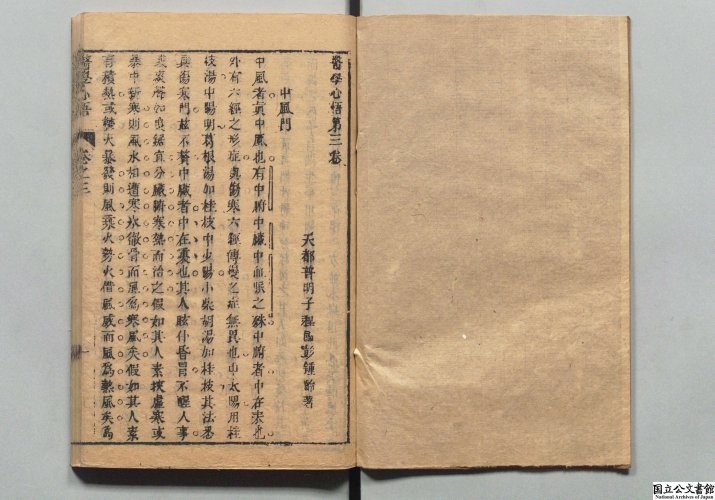 醫學心悟第三卷
天都普明子程國彭鍾齡著
中風門
中風者真中風也有中腑中臟中血脈之殊中腑者中在表也
外有六經之形症與傷寒六經傳變之症無異也中太陽用桂
枝湯中陽明葛根湯加桂枝中少陽小柴胡湯加桂枝其法悉
具傷寒門茲不贅中臟者中在裏也其人眩仆昏冒不醒人事
或痰聲如曳鋸宜分臟腑寒熱而治之假如其人素挾虛寒或
暴中新寒則風水相遭寒冰徹骨而風為寒風矣假如其人素
有積熱或鬱火暴發則風乘火勢火借風威而風為熱風矣為
醫學心悟
卷之三
国立公文書館
National Archives of Japan